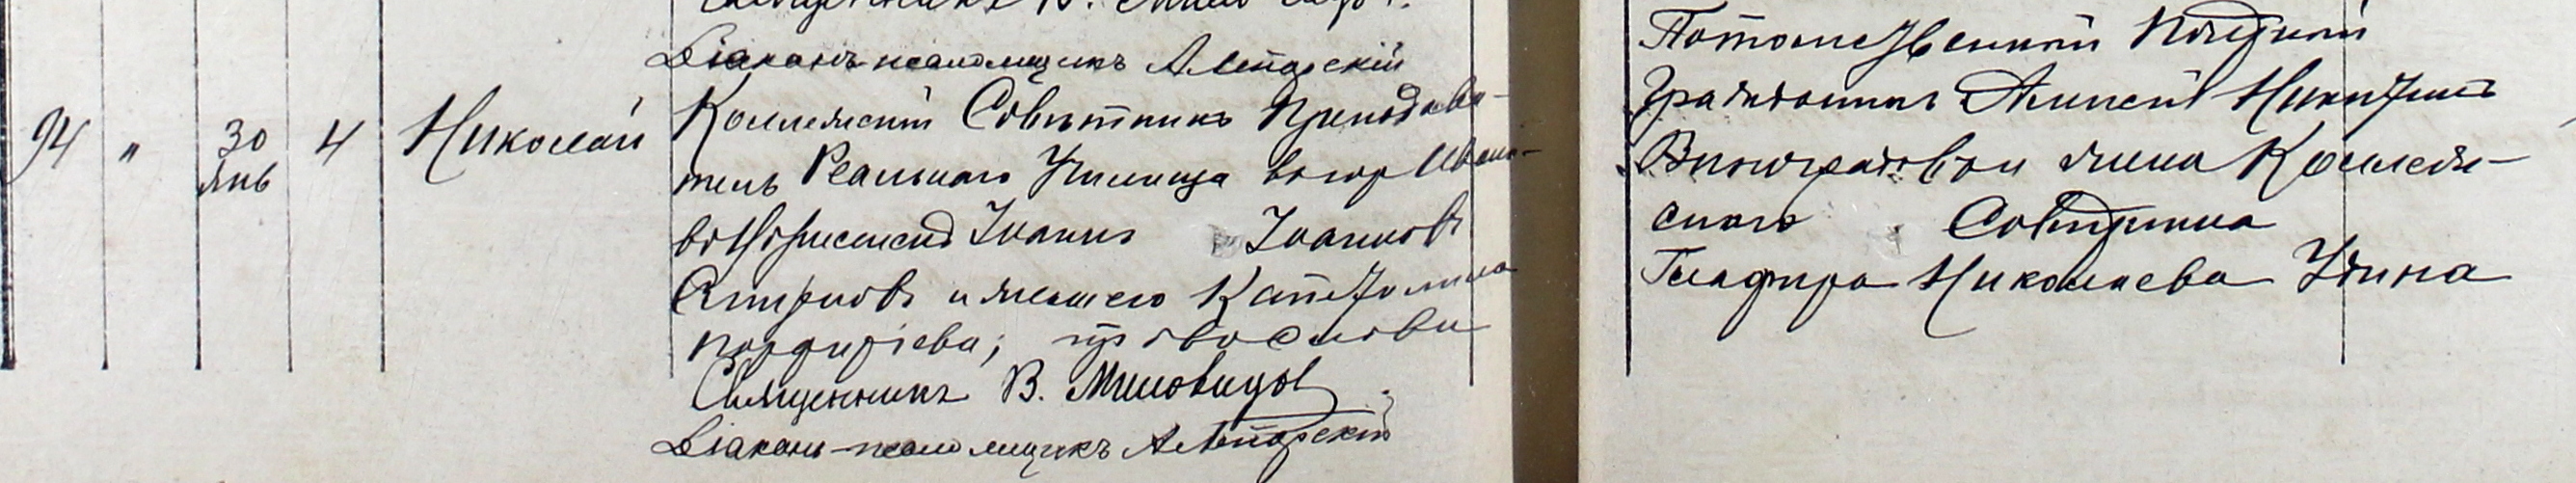 Діаконъ-псаломщикъ А. Алтарскій
94 " 30 Янв 4 Николай
Коллежскій Совѣтникъ Преподава-
тель Реальнаго Училища въ гор Ивано-
во-Вознесенскѣ Іоаннъ Іоанновъ
и жена его Екатерина
Порфиріева; православные
Священникъ В. Миловидовъ.
Діаконъ-псаломщикъ А. Алтарскій
Потомственный Почетный
Гражданинъ Алексѣй Никитинъ
Виноградовъ и жена Коллеж-
скаго Совѣтника
Глафира Николаева